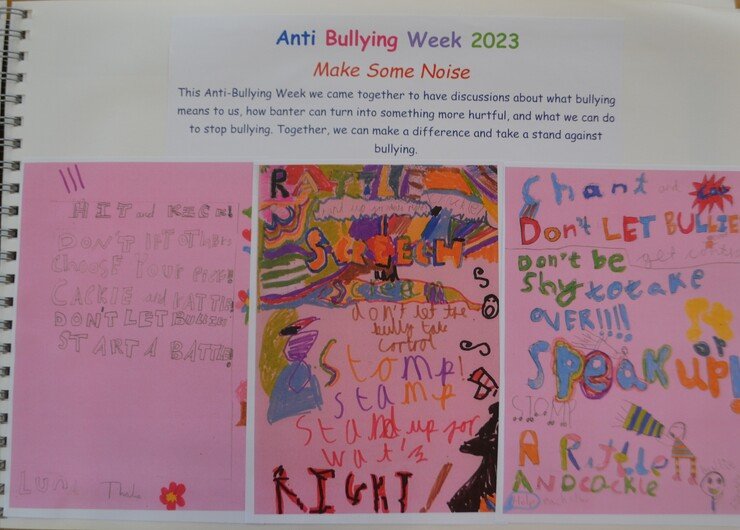 Anti Bullying Week 2023
Make Some Noise
This Anti-Bullying Week we came together to have discussions about what bullying
means to us, how banter can turn into something more hurtful, and what we can do
to stop bullying. Together, we can make a difference and take a stand against
bullying.
HIT and KICK!
DON'T LET OTHERS
CHOOSE YOUR PICK!
CACKLE and RATTLE
DON'T LET
START A BATTLE
RATTLE
SCREECH
and
don't let the
bully take
control
Stomp!
stamp
Stand up for
wat's
RIGHT!
Chant and
Don't LET BULLIE
get
Don't be
shy to take
OVER!!!!
or
SPEAK UP!
STOMP
A Rattle
AND cackle